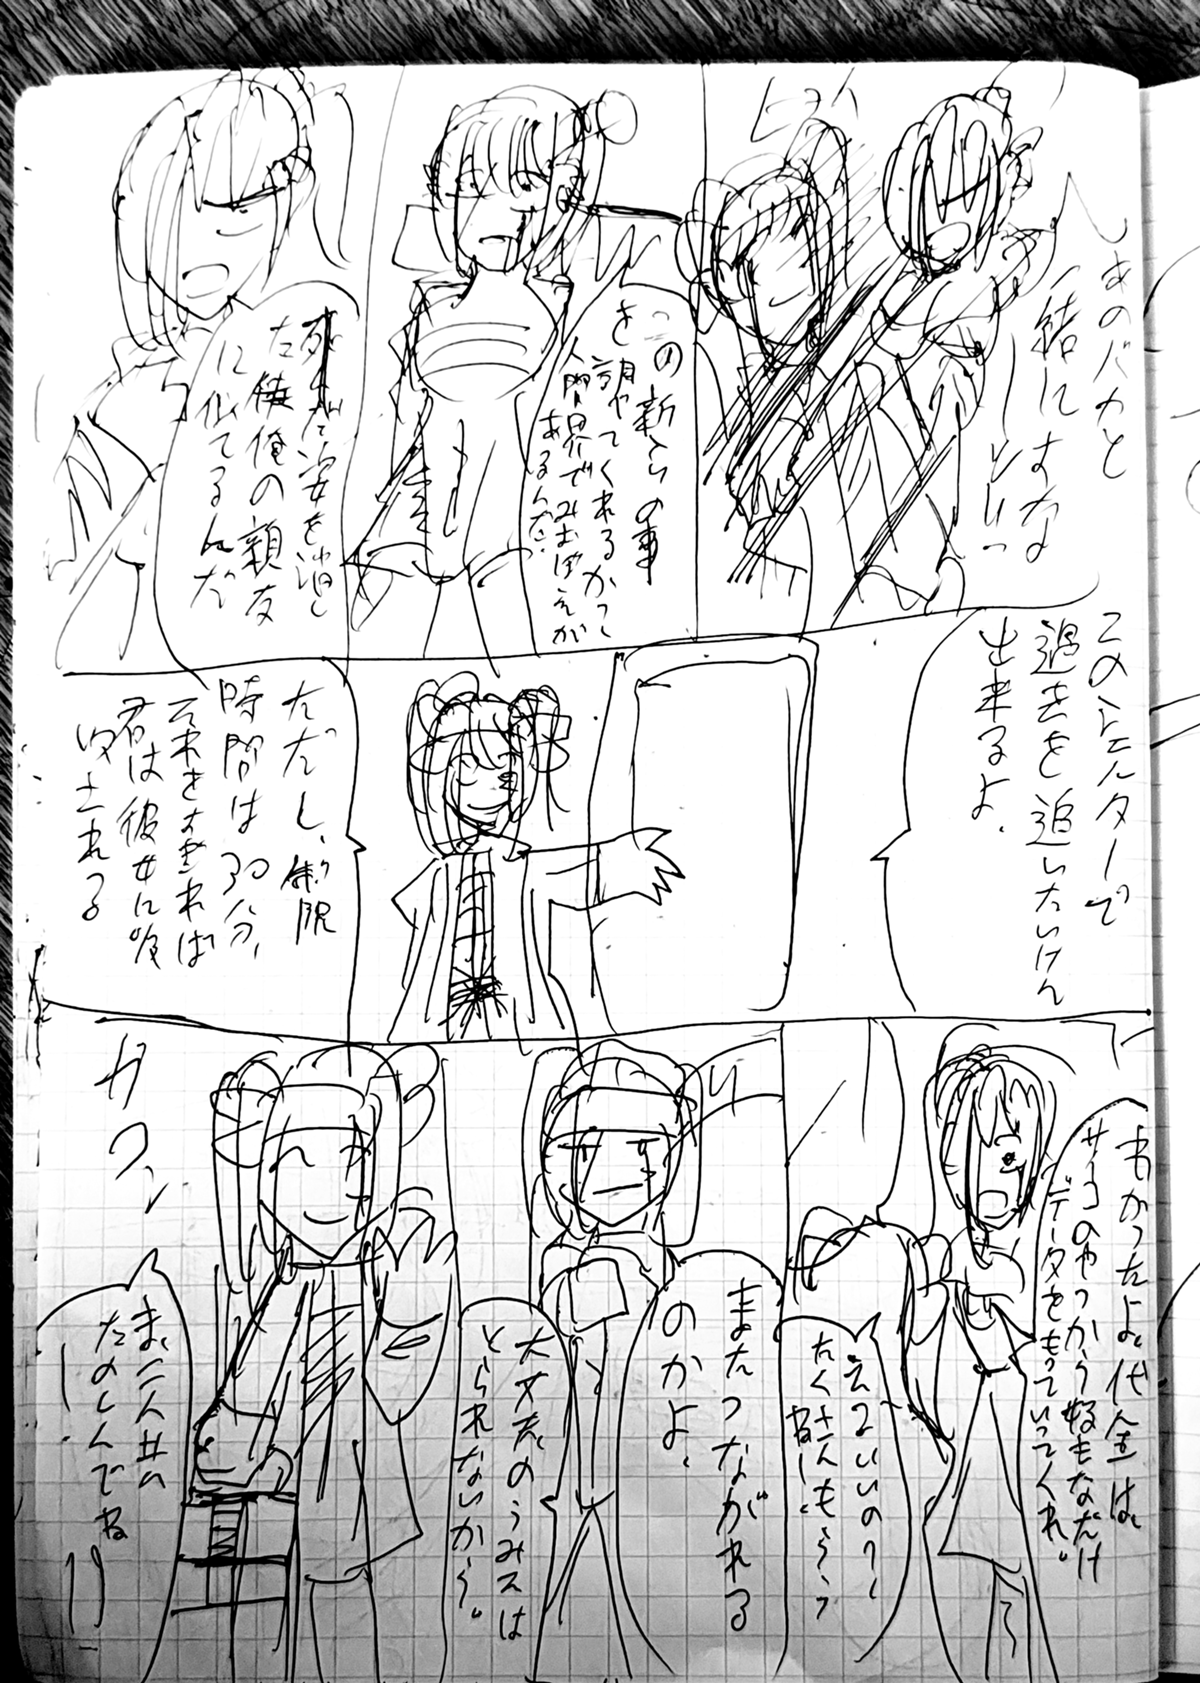 あのバカと
一緒にすな
この新入りの事
を調べてくれるかい
人間界でみおぼえが
あるんだ。
姿を消し
た俺の親友
に似てるんだ
このモニターで
過去を追いたいけん
出来るよ。
ただし、制限
時間は30分、
それをすぎれば
君は彼女に
される
わかったよ。代金は、
サイコのやつから好きなだけ
データをもっていってくれ。
えっいいのー
たくさんもらうう
ねー。
またつながれる
のかよ。
大丈夫。のうみそは
とられないから。
ガコン
ま、二人共
たのしんでね
ー!!